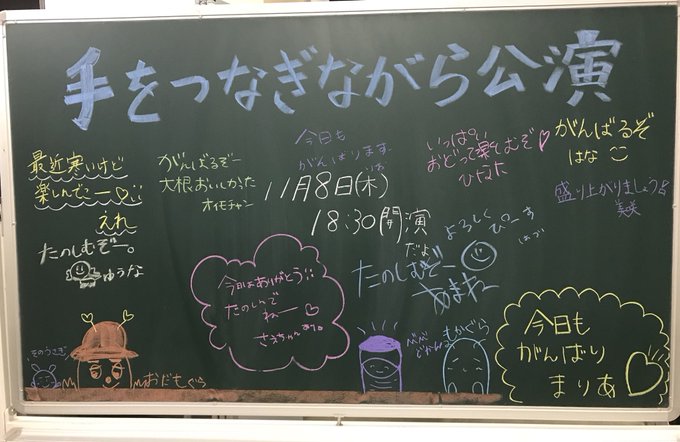 手をつなぎながら公演
最近寒いけど
楽しんでこー♡
えれ
たのしむぞー。
ゆうな
がんばるぞー
大根おいしかった
オイモチャン
今日も
がんばります
11月8日(木)
18:30開演
だよ
いっぱい
おどって楽しむぞ♡
ひなた
がんばるぞ
はな
盛り上がりましょう
美咲
よろしく
たのしむぞー
あまねー
今日はありがとう
たのしんで
ねー♡
さえちゃん
そのうさぎ
おだもぐら
どかん
もかぐら
今日も
がんばり
まりあ♡